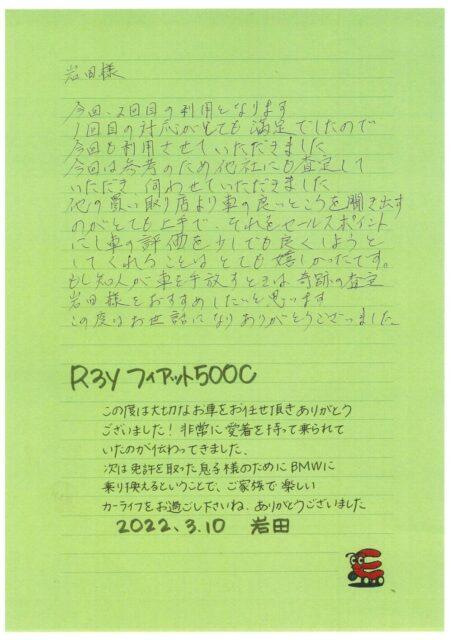 岩田様
今回、2回目の利用となります
1回目の対応がとても満足でしたので
今回も利用させていただきました
今回は参考のため他社にも査定して
いただき、伺わせていただきました
他の買い取り店より車の良いところを聞き出す
のがとても上手で、それをセールスポイント
にし車の評価を少しでも良くしようと
してくれることはとても嬉しかったです。
もし知人が車を手放すときは奇跡の査定
岩田様をおすすめしたいと思います
この度はお世話になりありがとうございました。
R3Y フィアット500C
この度は大切なお車をお任せ頂きありがとう
ございました！非常に愛着を持って来られて
いたのが伝わってきました。
次は免許を取った息子様のためにBMWに
乗り換えるということで、ご家族で楽しい
カーライフをお過ごし下さいね、ありがとうございました
2022.3.10 岩田